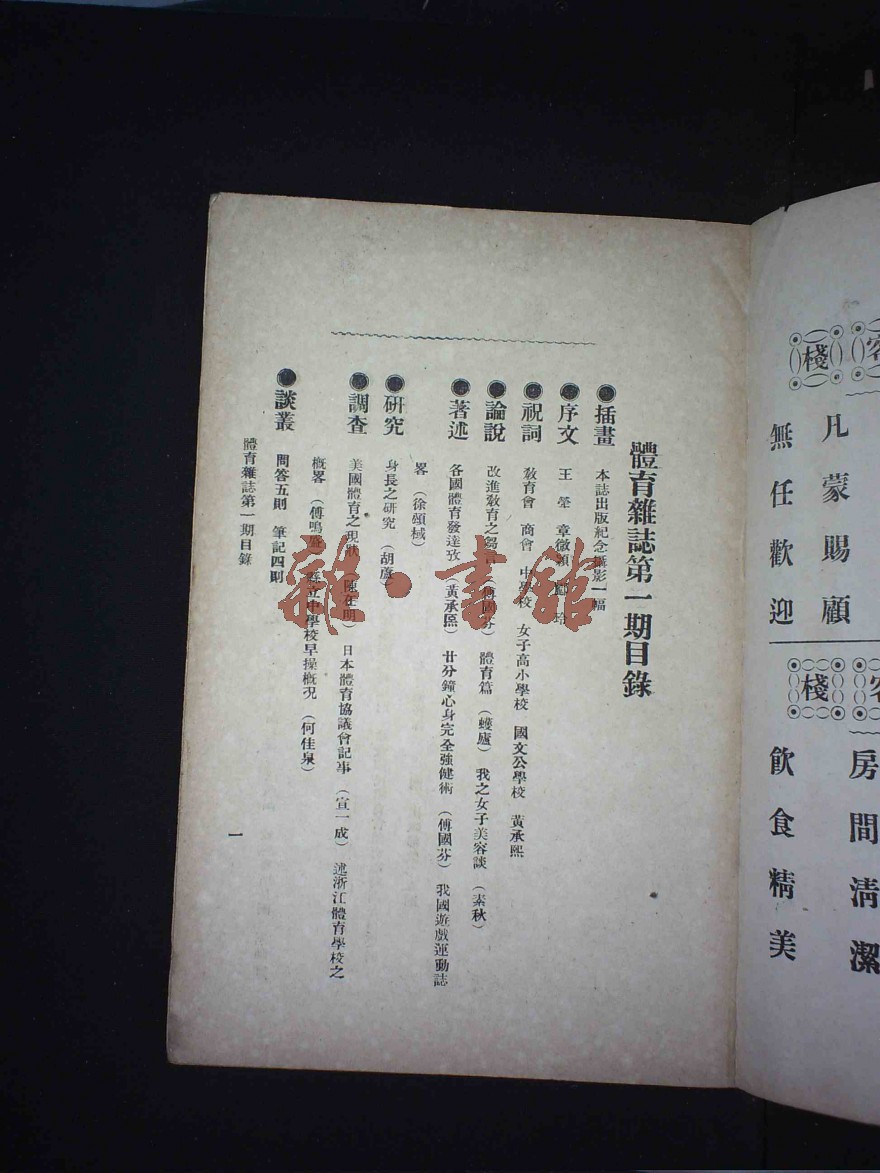 客棧
凡蒙賜顧
無任歡迎
客棧
房間清潔
飲食精美
體育雜誌第一期目錄
插畫 本誌出版紀念攝影一幅
序文 王 章徵
祝詞 教育會 商會 中學校 女子高小學校 國文公學校 黃承熙
論說 改進教育之芻 (傅國芬) 體育篇 (蠖廬) 我之女子美容談 (素秋)
著述 各國體育發達攷 (黃承熙) 廿分鐘心身完全強健術 (傅國芬) 我國遊戲運動誌
畧 (徐頌棫)
研究 身長之研究 (胡廬)
調查 美國體育之現狀 (陳在明) 日本體育協議會記事 (宣一成) 述浙江體育學校之
概畧 (傅鳴盛) 縣立中學校早操概況 (何佳泉)
談叢 問答五則 筆記四則
體育雜誌第一期目錄
一
雜·書館